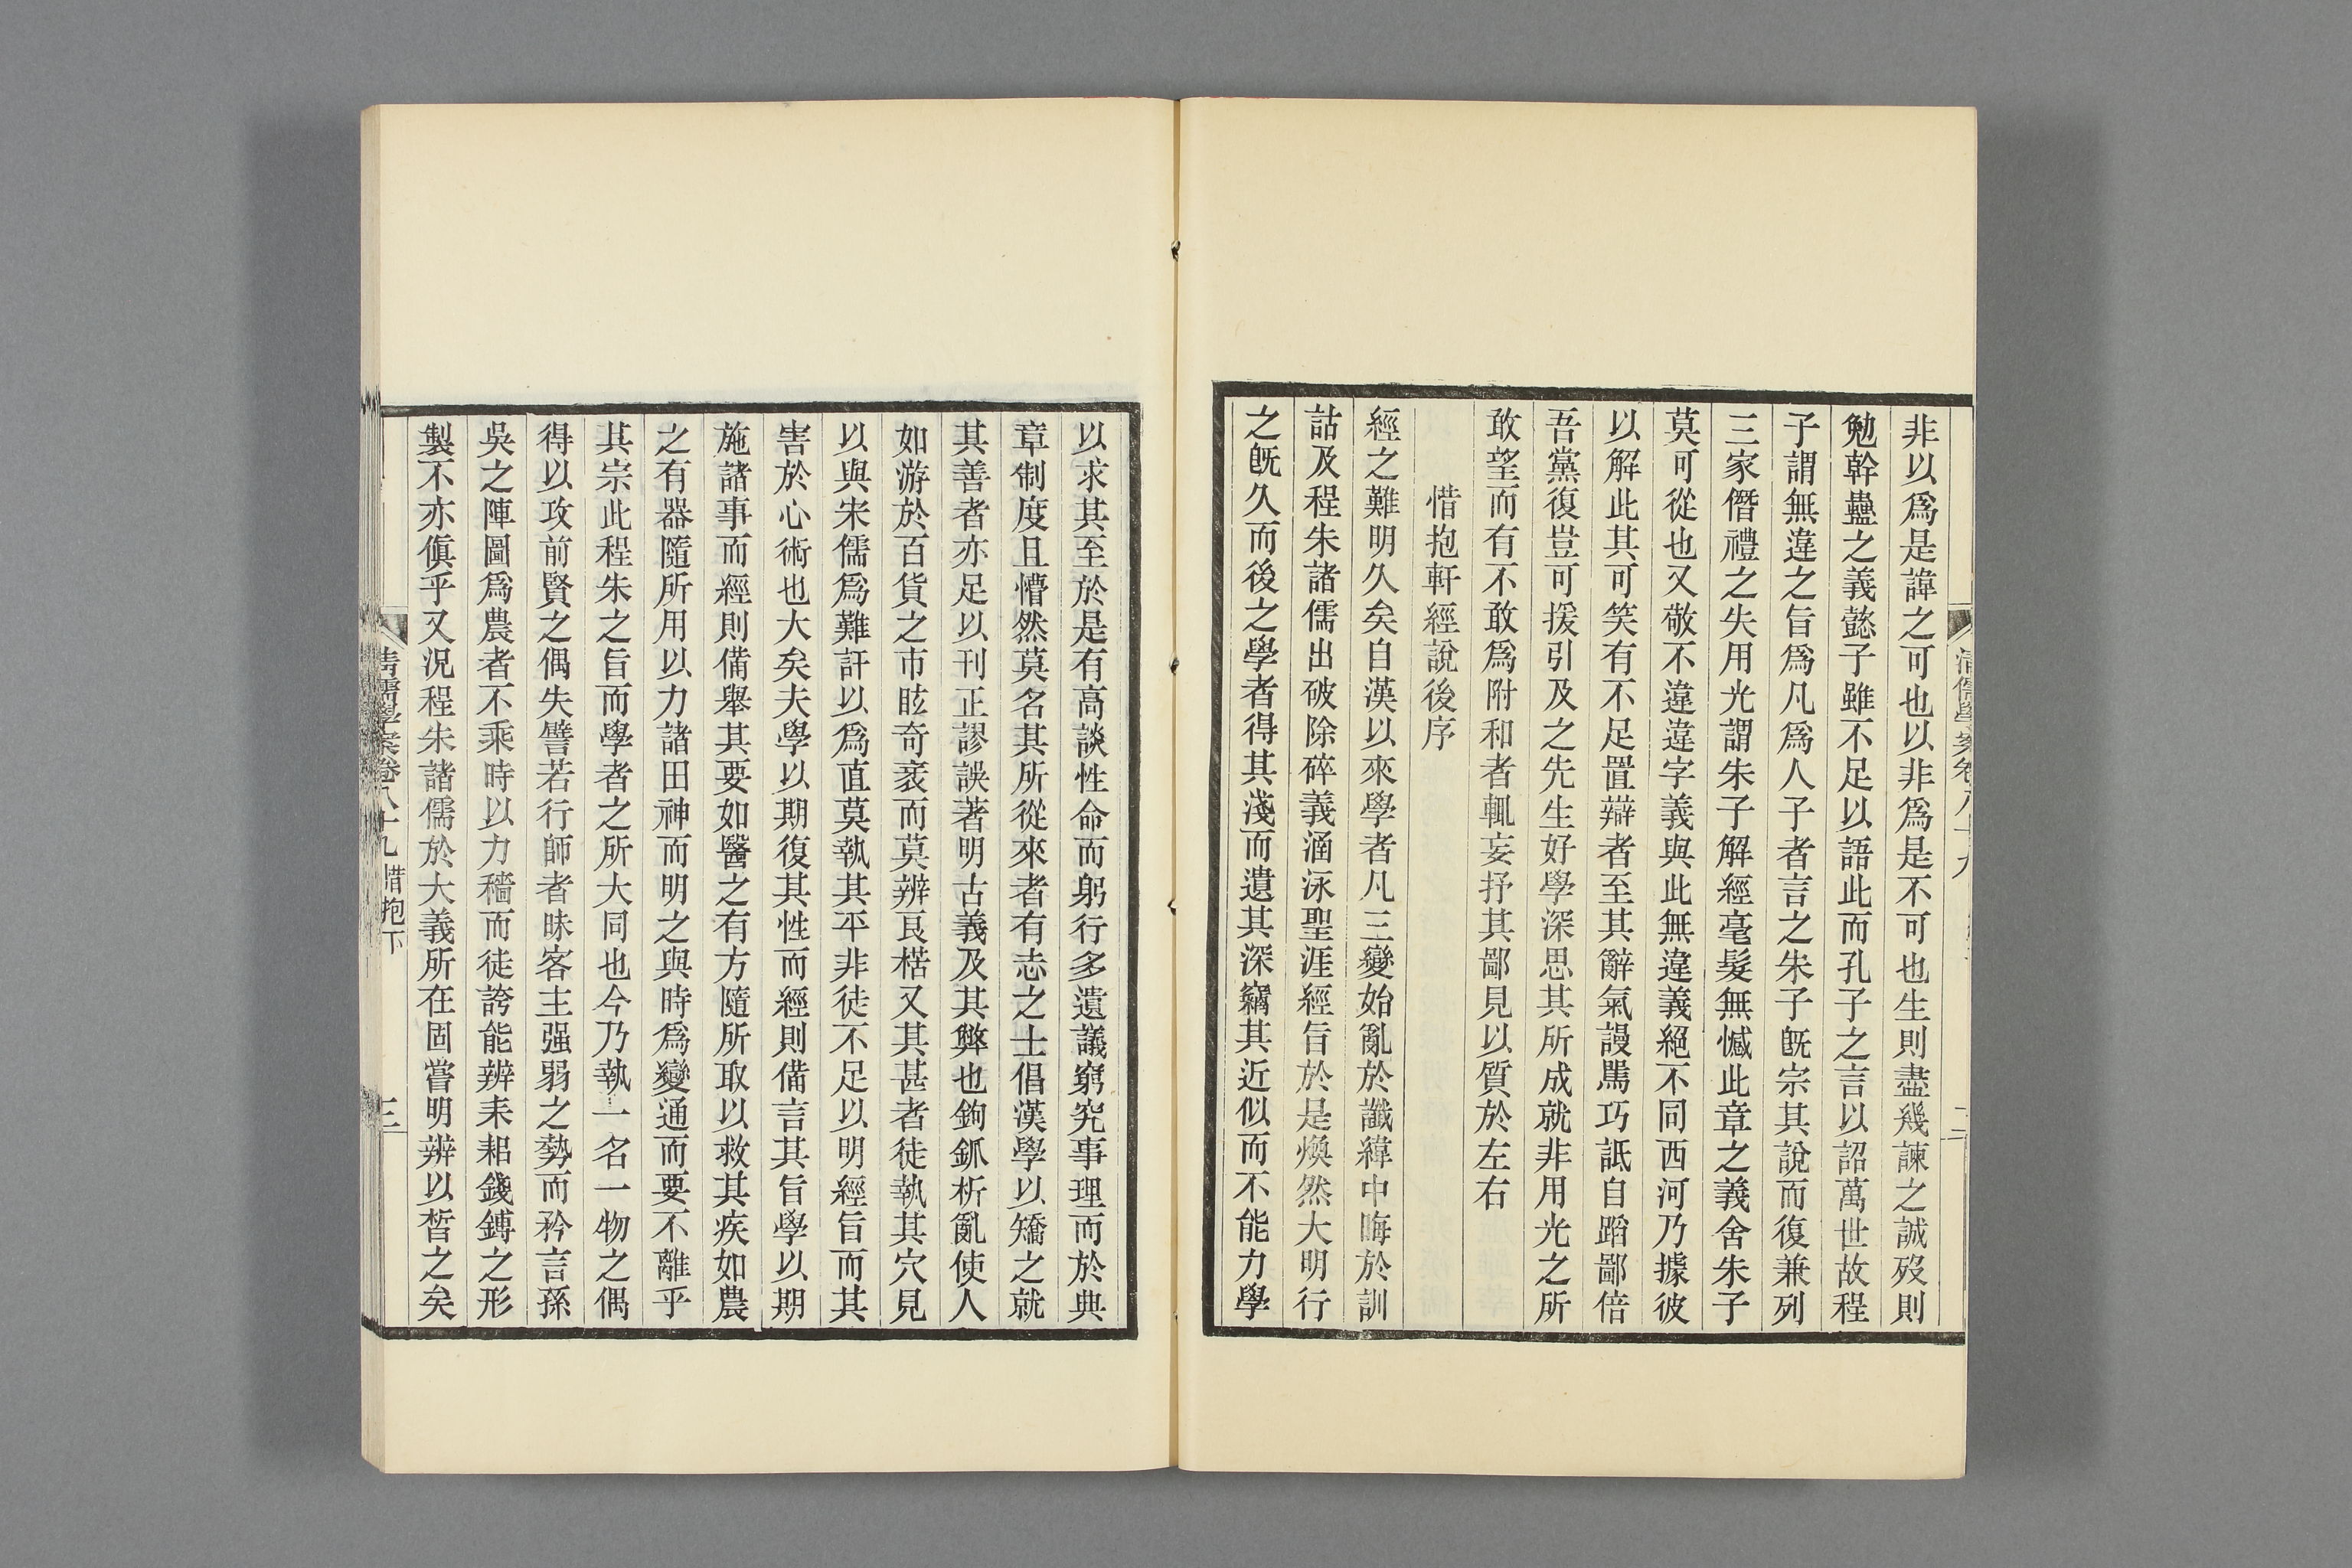 非以爲是諱之可也以非爲是不可也生則盡幾諫之誠歿則
勉幹蠱之義懿子雖不足以語此而孔子之言以詔萬世故程
子謂無違之旨爲凡爲人子者言之朱子旣宗其說而復兼列
三家僭禮之失用光謂朱子解經毫髮無憾此章之義舍朱子
莫可從也又敬不違違字義與此無違義絕不同西河乃據彼
以解此其可笑有不足置辯者至其辭氣謾罵巧詆自蹈鄙倍
吾黨復豈可援引及之先生好學深思其所成就非用光之所
敢望而有不敢爲附和者輒妄抒其鄙見以質於左右
惜抱軒經說後序
經之難明久矣自漢以來學者凡三變始亂於讖緯中晦於訓
詁及程朱諸儒出破除碎義涵泳聖涯經旨於是煥然大明行
之旣久而後之學者得其淺而遺其深竊其近似而不能力學
以求其至於是有高談性命而躬行多遺議窮究事理而於典
章制度且懵然莫名其所從來者有志之士倡漢學以矯之就
其善者亦足以刊正謬誤著明古義及其弊也鉤鈲析亂使人
如游於百貨之市眩奇袤而莫辨良楛又其甚者徒執其穴見
以與宋儒爲難訐以爲直莫執其平非徒不足以明經旨而其
害於心術也大矣夫學以期復其性而經則備言其旨學以期
施諸事而經則備舉其要如醫之有方隨所取以救其疾如農
之有器隨所用以力諸田神而明之與時爲變通而要不離乎
其宗此程朱之旨而學者之所大同也今乃執一名一物之偶
得以攻前賢之偶失譬若行師者昧客主强弱之勢而矜言孫
吳之陣圖爲農者不乘時以力穡而徒誇能辨耒耜錢鎛之形
製不亦傎乎又況程朱諸儒於大義所在固嘗明辨以晳之矣
清儒學案卷八十九 惜抱下
三